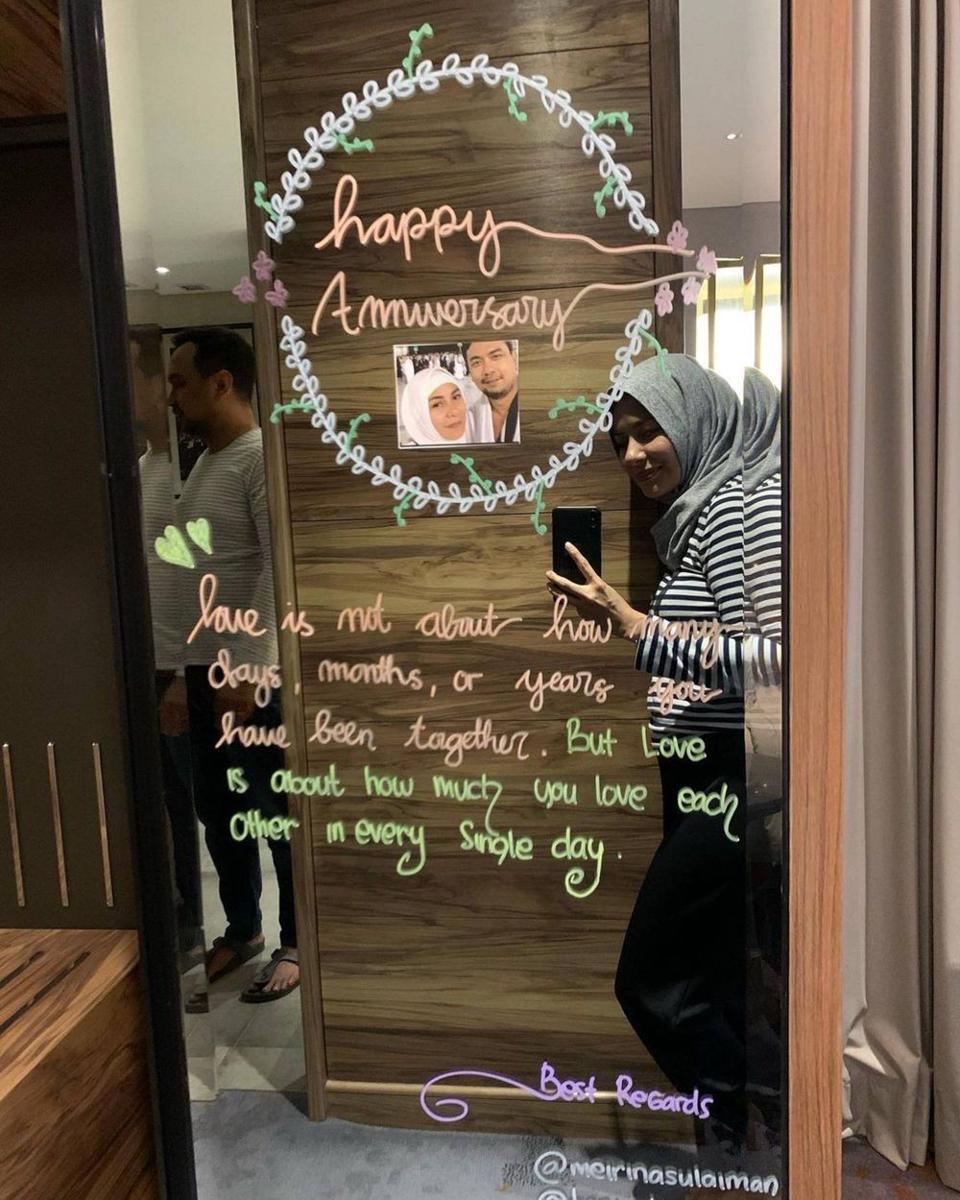 happy
Anniversary
love is not about how many
days, months, or years you
have been together. But Love
is about how much you love each
other in every single day.
Best Regards
@meirinasulaiman